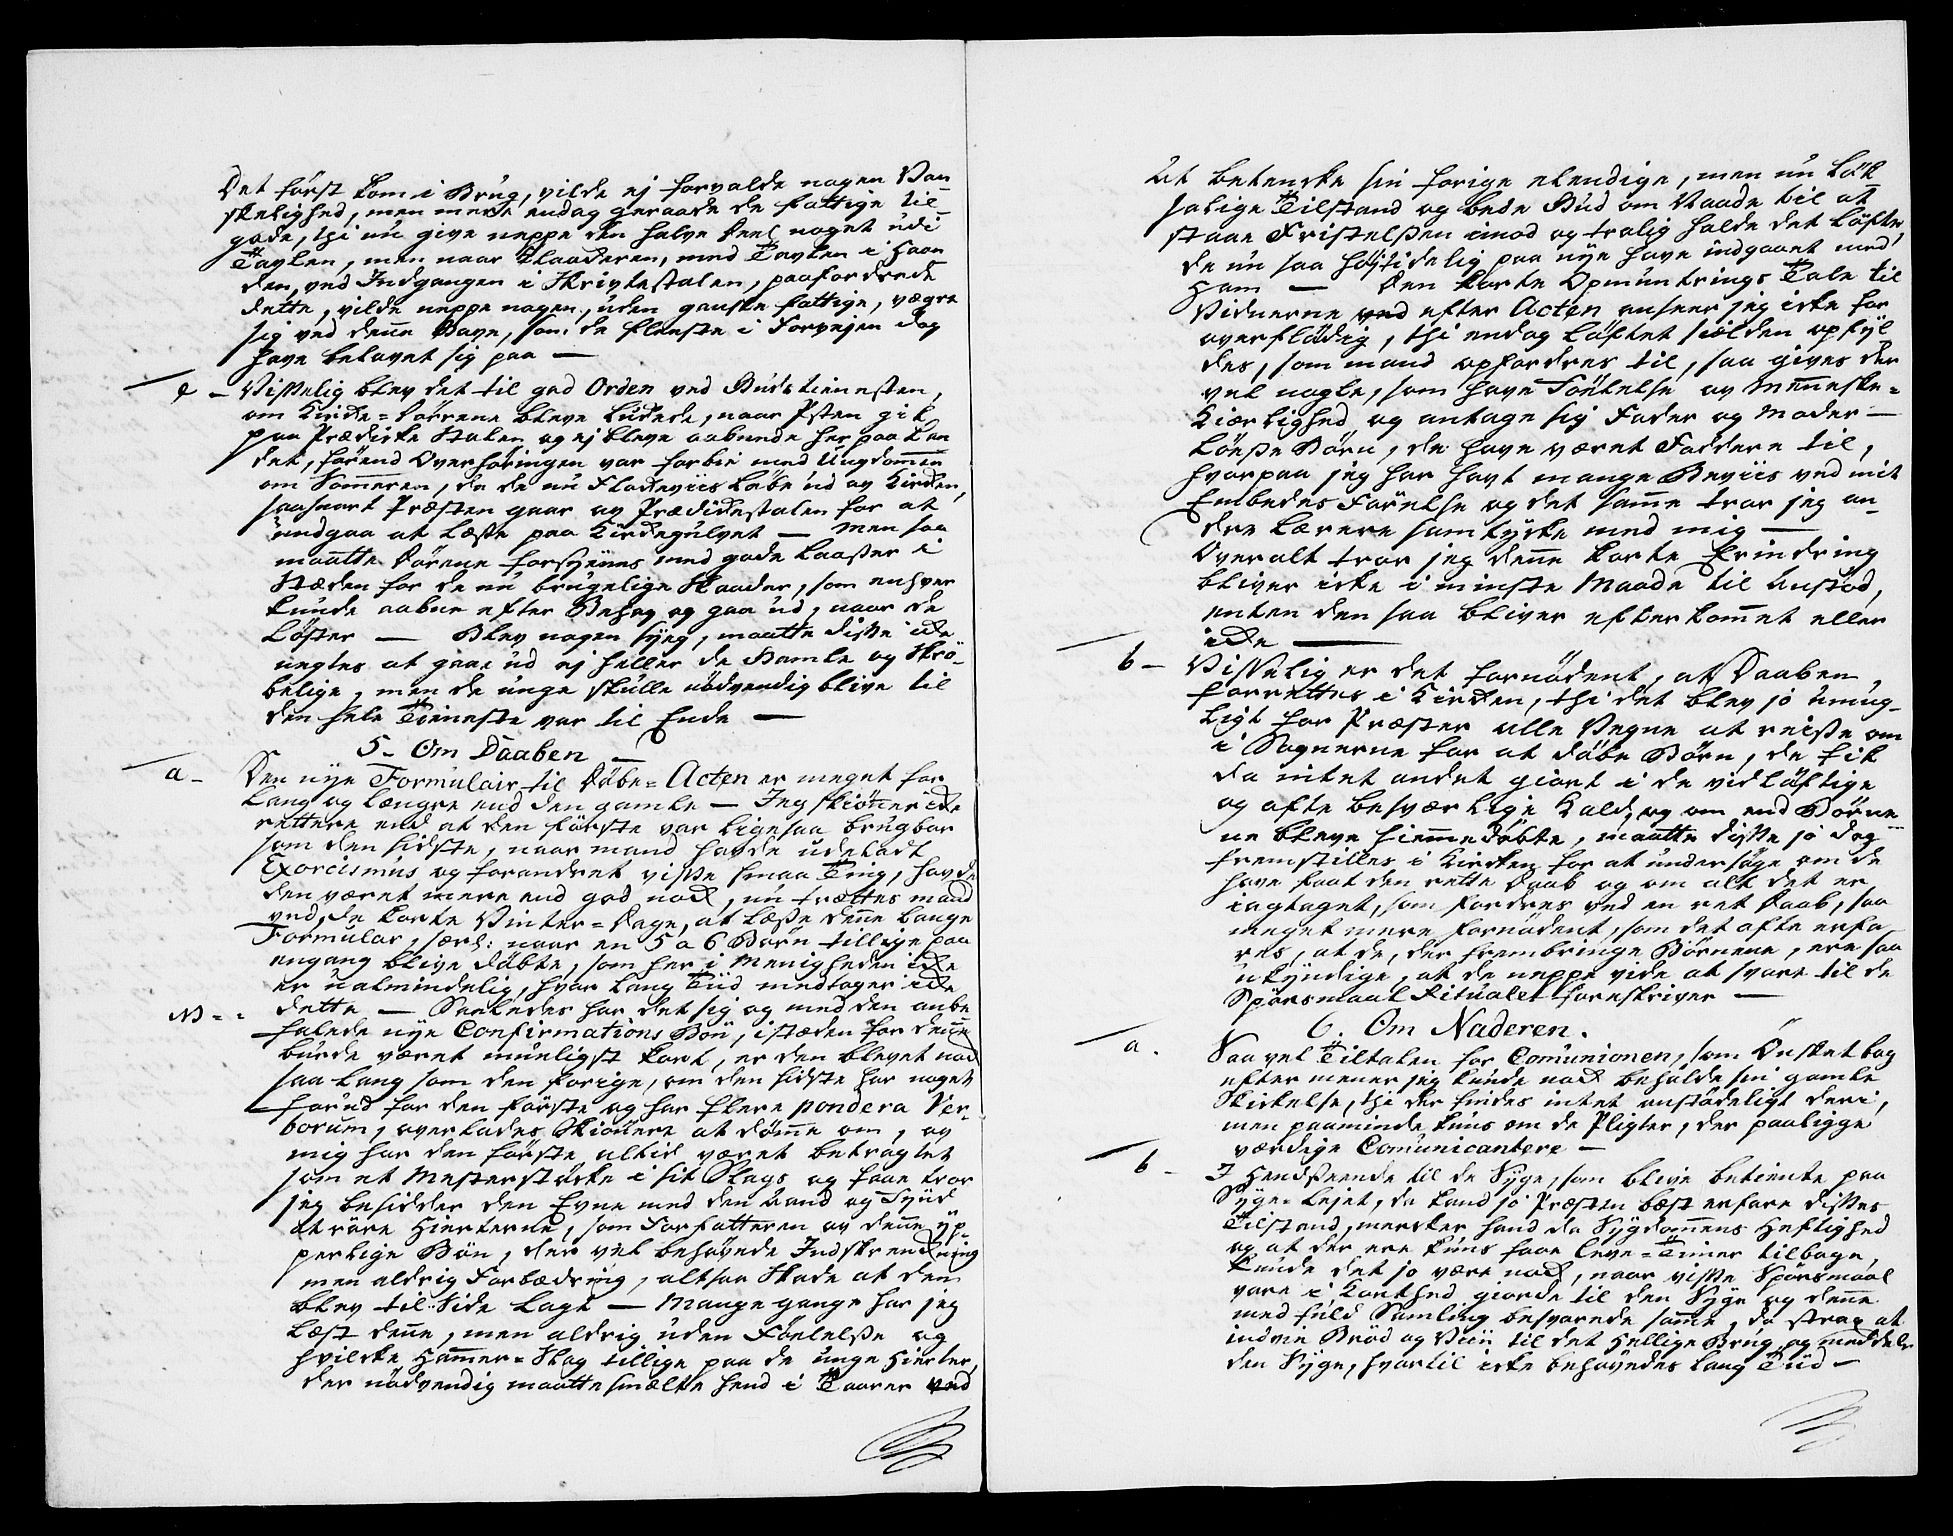 Det först kom i Brug, vilde ej forvolde nogen Van
skelighed, men mere endog geraade de fattige til
gode, thi nu give neppe den halve Deel noget udi
Tavlen, men naar Klokkeren, med Tavlen i Haan
den, ved Indgangen i Skriftestolen, paafordrede
dette, vilde neppe nogen, uden ganske fattige, vegre
sig ved denne Gave, som de fleeste i Forvejen dog
have belavet sig paa —
e – Visselig blev det til god Orden ved Gudstienesten,
om Kirke=Dörrene bleve lukede, naar Psten gik
paa Prædike Stolen og ej bleve aabnede her paa Lan
det, förend Overhöringen var forbie med Ungdommen
om Sommeren, da de nu Flokeviis löbe ud av Kirken,
saasnart Præsten gaar av Prædikestolen for at
undgaa at læse paa Kirkegulvet — Men saa
maatte Dörene forsynes med gode Laaser i
Stæden for de nu brugelige Skaader, som enhver
kunde aabne efter Behag og gaa ud, naar de
löster — Blev nogen syg, maatte disse ikke
negtes at gaae ud ej heller de Gamle og Skrö-
belige, men de unge skulle nödvendig blive til
den hele Tieneste var til Ende —
5. Om Daaben —
a – Den nye Formulair til Döbe=Acten er meget for
lang og længre end den gamle — Jeg skiönner ikke
rettere end at den förste var ligesaa brugbar
som den sidste, naar mand havde udeladt
Exorcismus og forandret visse smaa Ting, havde
den været mere end god nok, nu trættes mand
ved de korte Vinter=Dage, at læse denne lange
Formular, særd: naar en 5 a 6 Börn tillige paa
engang blive döbte, som her i Menigheden ikke
er ualmindelig, hvor lang Tiid medtager ikke
dette — Saaledes har det sig og med den anbe
falede nye Confirmations Bön, i stæden for denne
burde været mueligst kort, er den blevet nok
saa lang som den forige, om den sidste har noget
forud for den förste og har flere pondera Ver-
borum, overlades Skiönnere at dömme om, av
mig har den förste altid været betragtet
som et Mesterstücke i sit Slags og faae troer
jeg besidder den Evne med den Aand og Fynd
at röre Hierterne, som Forfatteren av denne yp-
perlige Bön, der vel behövede Indskrenkning
men aldrig Forbædring, altsaa Skade at den
blev til Side lagt — Mange gange har jeg
læst denne, men aldrig uden Föelelse og
hvilcke Hammer=Slag tillige paa de unge Hierter,
der nödvendig maatte smælte hend i Taarer ved
At betencke sin forige elendige, men nu lök
salige Tilstand og bede Gud om Naade til at
staae Fristelsen imod og trolig holde det Löfte,
de nu saa höjtidelig paa nye have indgaaet med
Ham — Den korte Opmuntrings Tale til
Vidnerne efter Acten anseer jeg icke for
overflödig, thi endog Löftet siælden opfyl
des, som mand opfordres til, saa gives der
vel nogle, som have Föelelse av Menneske=
Kiærlighed og antage sig Fader og Moder—
lööse Börn, de have været Faddere til,
hvorpaa jeg har havt mange Beviis ved mit
Embedes Förelse og det samme troer jeg an-
dre Lærere samtycke med mig —
Overalt troer jeg denne korte Erindring
bliver icke i minste Maade til Anstöd,
enten den saa bliver efterkommet eller
icke —
b – Visselig er det fornödent, at Daaben
forrettes i Kircken, thi det blev jo umug-
ligt for Præster alle Vegne at reise om
i Sognerne for at döbe Börn, de fik
da intet andet giort i de vidlöftige
og ofte besværlige Kald, og om end Börne
ne bleve hiemmedöbte, maatte disse jo dog
fremstilles i Kircken for at undersöge om de
have faaet den rette Daab og om alt det er
iagtaget, som fordres ved en ret Daab, saa
meget mere fornödent, som det ofte erfa
res, at de, der frembringe Börnene, ere saa
ukyndige, at de neppe vide at svare til de
Spörsmaal Ritualet foreskriver —
6. Om Naderen.
a. Saavel Tiltalen for Comunionen, som Önsket bag
efter mener jeg kunde nok beholde sin gamle
Skikelse, thi der findes intet anstödeligt deri,
men paaminde kuns om de Pligter, der paaligge
værdige Comunicantere —
b – I Henseende til de Syge, som blive betiente paa
Syge=Lejet, da kand jo Præsten best erfare disses
Tilstand, mercker hand da Sygdommens Heftighed
og at der ere kuns faae Leve=Timer tilbage,
kunde det jo være nok, naar visse Spörsmaal
vare i Korthed giorde til den Syge og denne
med fuld Samling besvarede samme, da strax at
indvie Bröd og Viin til det hellige Brug og meddele
den Syge, hvortil icke behövedes lang Tiid —